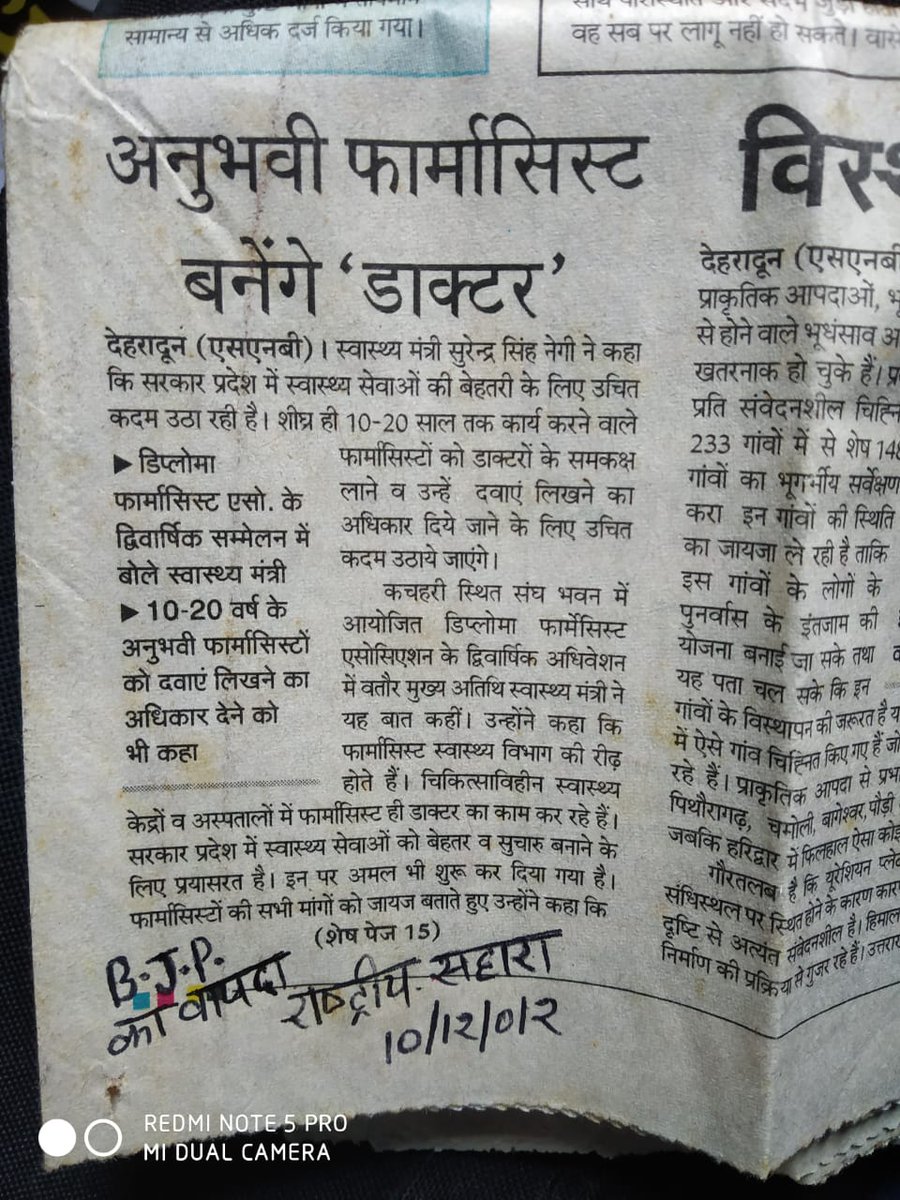 सामान्य से अधिक दर्ज किया गया।
वह सब पर लागू नहीं हो सकते। वास
अनुभवी फार्मासिस्ट
बनेंगे ‘डाक्टर’
देहरादून (एसएनबी)। स्वास्थ्य मंत्री सुरेन्द्र सिंह नेगी ने कहा
कि सरकार प्रदेश में स्वास्थ्य सेवाओं की बेहतरी के लिए उचित
कदम उठा रही है। शीघ्र ही 10-20 साल तक कार्य करने वाले
►डिप्लोमा
फार्मासिस्ट एसो. के
द्विवार्षिक सम्मेलन में
बोले स्वास्थ्य मंत्री
►10-20 वर्ष के
अनुभवी फार्मासिस्टों
को दवाएं लिखने का
अधिकार देने को
भी कहा
फार्मासिस्टों को डाक्टरों के समकक्ष
लाने व उन्हें दवाएं लिखने का
अधिकार दिये जाने के लिए उचित
कदम उठाये जाएंगे।
कचहरी स्थित संघ भवन में
आयोजित डिप्लोमा फार्मेसिस्ट
एसोसिएशन के द्विवार्षिक अधिवेशन
में वतौर मुख्य अतिथि स्वास्थ्य मंत्री ने
यह बात कहीं। उन्होंने कहा कि
फार्मासिस्ट स्वास्थ्य विभाग की रीढ़
होते हैं। चिकित्साविहीन स्वास्थ्य
केद्रों व अस्पतालों में फार्मासिस्ट ही डाक्टर का काम कर रहे हैं।
सरकार प्रदेश में स्वास्थ्य सेवाओं को बेहतर व सुचारु बनाने के
लिए प्रयासरत है। इन पर अमल भी शुरू कर दिया गया है।
फार्मासिस्टों की सभी मांगों को जायज बताते हुए उन्होंने कहा कि
(शेष पेज 15)
B.J.P.
का वायदा राष्ट्रीय सहारा
10/12/02
विस्थ
देहरादून (एसएनबी
प्राकृतिक आपदाओं, भू
से होने वाले भूधंसाव अ
खतरनाक हो चुके हैं। प्र
प्रति संवेदनशील चिह्नि
233 गांवों में से शेष 148
गांवों का भूगर्भीय सर्वेक्षण
करा इन गांवों की स्थिति
का जायजा ले रही है ताकि
इस गांवों के लोगों के
पुनर्वास के इंतजाम की
योजना बनाई जा सके तथा
यह पता चल सके कि इन
गांवों के विस्थापन की जरूरत है य
में ऐसे गांव चिह्नित किए गए हैं जो
रहे हैं। प्राकृतिक आपदा से प्रभ
पिथौरागढ़, चमोली, बागेश्वर, पौड़ी
जबकि हरिद्वार में फिलहाल ऐसा कोई
गौरतलब है कि यूरेशियन प्लेट
संधिस्थल पर स्थित होने के कारण कारण
दृष्टि से अत्यंत संवेदनशील है। हिमाल
निर्माण की प्रक्रिया से गुजर रहे हैं। उत्तरा
REDMI NOTE 5 PRO
MI DUAL CAMERA